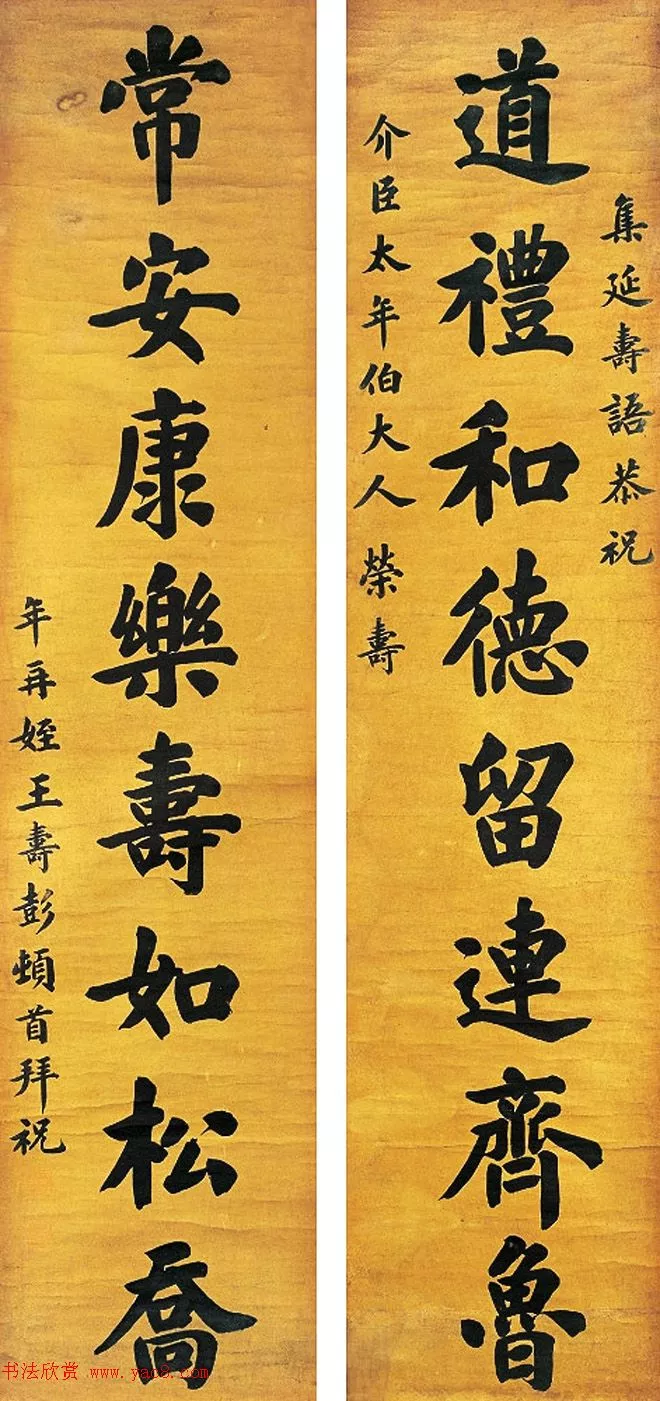 集延壽語恭祝
道禮和德留連齊魯
介臣太年伯大人榮壽
常安康樂壽如松喬
年再姪王壽彭頓首拜祝
书法欣赏 www.yac8.com